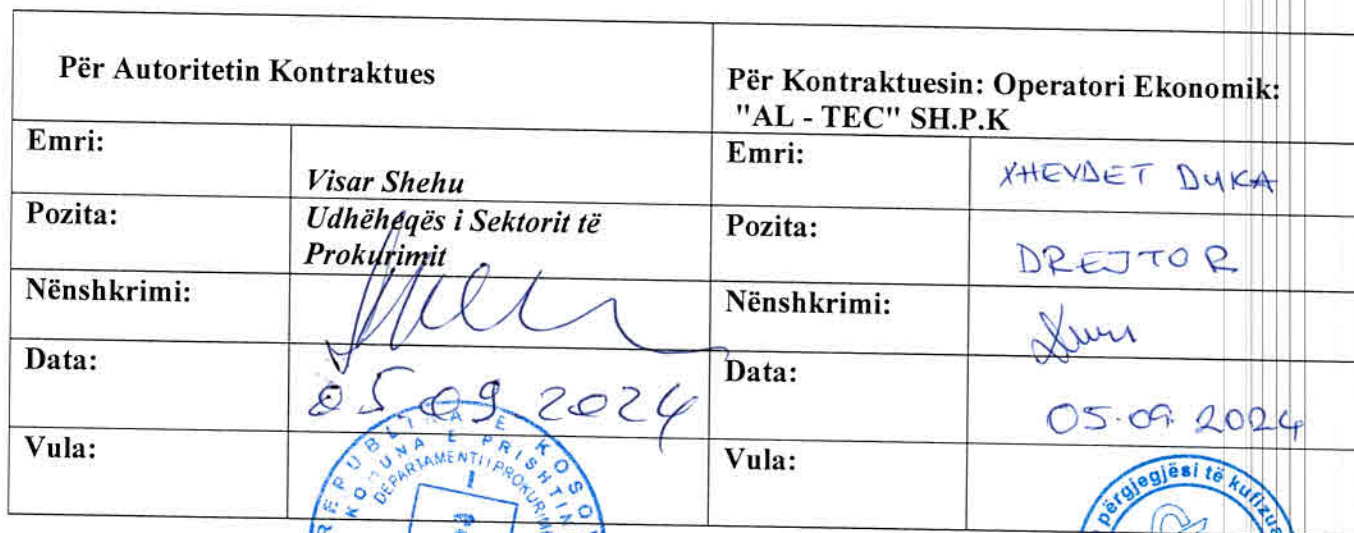 Për Autoritetin Kontraktues
Për Kontraktuesin: Operatori Ekonomik:
"AL - TEC" SH.P.K
Emri:
Visar Shehu
Emri:
XHEVDET DUKA
Pozita:
Udhëheqës i Sektorit të
Prokurimit
Pozita:
DREJTOR
Nënshkrimi:
Nënshkrimi:
Data:
05.09 2024
Data:
05.09.2024
Vula:
REPUBLIKA E KOSO
KOMUNA E PRISHTIN
DEPARTAMENTI I PROKURIM
Vula:
përgjegjësi të kufizua